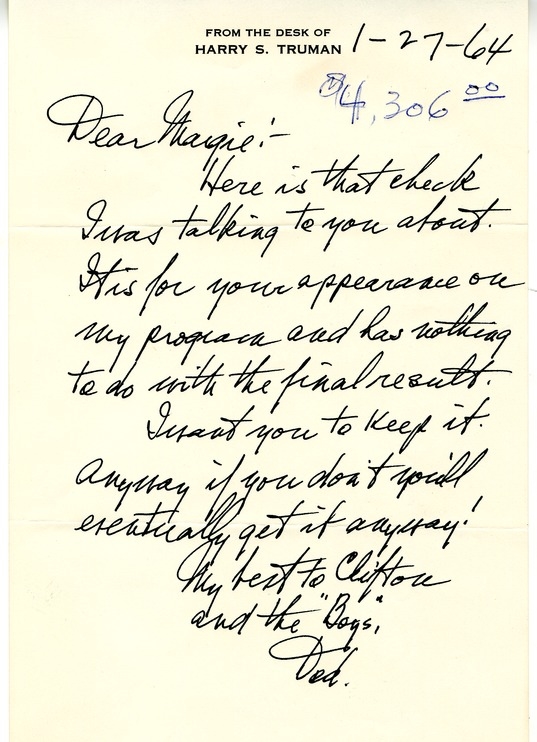 FROM THE DESK OF
HARRY S. TRUMAN
1-27-64
$4,306.00
Dear Margie:-
Here is that check
I was talking to you about.
It is for your appearance on
my program and has nothing
to do with the final result.
I want you to keep it.
Anyway if you don't you'll
eventually get it anyway!
My best to Clifton
and the "Boys,"
Dad.